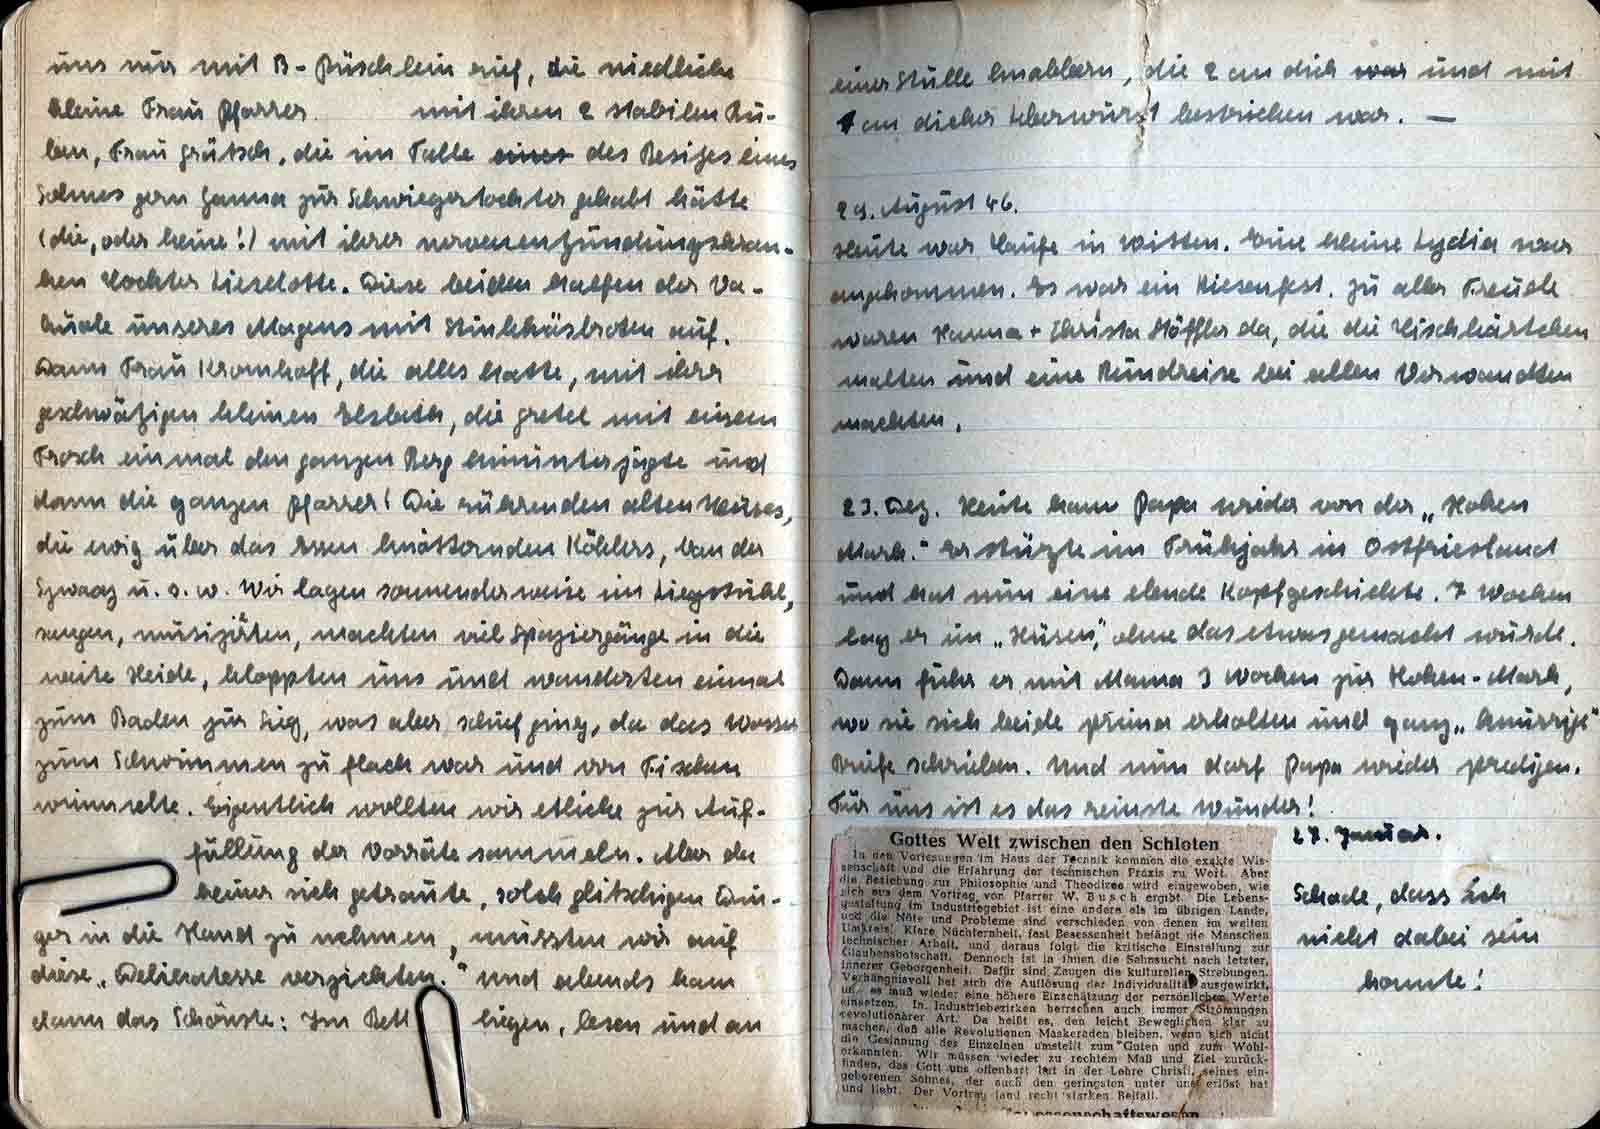 uns nur mit B-Püschlein rief, die niedliche
kleine Frau Pfarrer mit ihren 2 stabilen Bu-
ben, Frau Grätsch, die im Falle eines des Besitzes eines
Sohnes gern Hanna zur Schwiegertochter gehabt hätte
(die, oder keine!) mit ihrer nervenentzündungskran-
ken Tochter Lieselotte. Diese beiden halfen der Va-
kuole unseres Magens mit Stinkkäsbroten auf.
Dann Frau Kromhoff, die alles hatte, mit ihrer
geschwätzigen kleinen Elsbeth, die Gretel mit einem
Frosch einmal den ganzen Berg hinunterjagte und
dann die ganzen Pfarrer! Die rührenden alten
die ewig über das Essen knötternden Köhlers, van der
u. s. w. Wir lagen sonnenderweise im Liegestuhl,
sangen, musizirten, machten viel Spaziergänge in die
weite Heide, kloppten uns und wanderten einmal
zum Baden zur Sieg, was aber schief ging, da das Wasser
zum Schwimmen zu flach war und von Fischen
wimmelte. Eigentlich wollten wir etliche zur Auf-
füllung der Vorräte sammeln. Aber da
keiner sich getraute, solch glitschigen Din-
ger in die Hand zu nehmen, mussten wir auf
diese „Delikatesse verzichten.“ Und abends kam
dann das Schönste: Im Bett liegen, lesen und an
einer Stulle knabbern, die 2 cm dick war und mit
1 cm dicker Leberwurst bestrichen war. —
29. August 46.
Heute war Taufe in Witten. Eine kleine Lydia war
angekommen. Es war ein Riesenfest. Zu aller Freude
waren Hanna + Christa Höffler da, die die Tischkärtchen
malten und eine Rundreise bei allen Verwandten
machten.
23. Dez. Heute kam Papa wieder von der „Hohen
Mark.“ Er stürzte im Frühjahr in Ostfriesland
und hat nun eine elende Kopfgeschichte. 7 Wochen
lag er im „Hüsen“, ohne dass etwas gemacht wurde.
Dann fuhr er mit Mama 3 Wochen zur Hohen-Mark,
wo sie sich beide prima erholten und ganz „knurrige“
Briefe schrieben. Und nun darf Papa wieder predigen.
Für uns ist es das reinste Wunder!
27. Januar.
Schade, dass ich
nicht dabei sein
konnte!
Gottes Welt zwischen den Schloten
In den Vorlesungen im Haus der Technik kommen die exakte Wis-
senschaft und die Erfahrung der technischen Praxis zu Wort. Aber
die Beziehung zur Philosophie und Theodizee wird eingewoben, wie
sich aus dem Vortrag von Pfarrer W. Busch ergibt. Die Lebens-
gestaltung im Industriegebiet ist eine andere als im übrigen Lande,
und die Nöte und Probleme sind verschieden von denen im weiten
Umkreis! Klare Nüchternheit, fast Besessenheit befängt die Menschen
technischer Arbeit, und daraus folgt die kritische Einstellung zur
Glaubensbotschaft. Dennoch ist in ihnen die Sehnsucht nach letzter,
innerer Geborgenheit. Dafür sind Zeugen die kulturellen Strebungen.
Verhängnisvoll hat sich die Auflösung der Individualität ausgewirkt,
und es muß wieder eine höhere Einschätzung der persönlichen Werte
einsetzen. In Industriebezirken herrschen auch immer Strömungen
revolutionärer Art. Da heißt es, den leicht Beweglichen klar zu
machen, daß alle Revolutionen Maskeraden bleiben, wenn sich nicht
die Gesinnung des Einzelnen umstellt zum Guten und zum Wohl-
erkannten. Wir müssen wieder zu rechtem Maß und Ziel zurück-
finden, das Gott uns offenbart hat in der Lehre Christi, seines ein-
geborenen Sohnes, der auch den geringsten unter uns erlöst hat
und liebt. Der Vortrag fand recht starken Beifall.